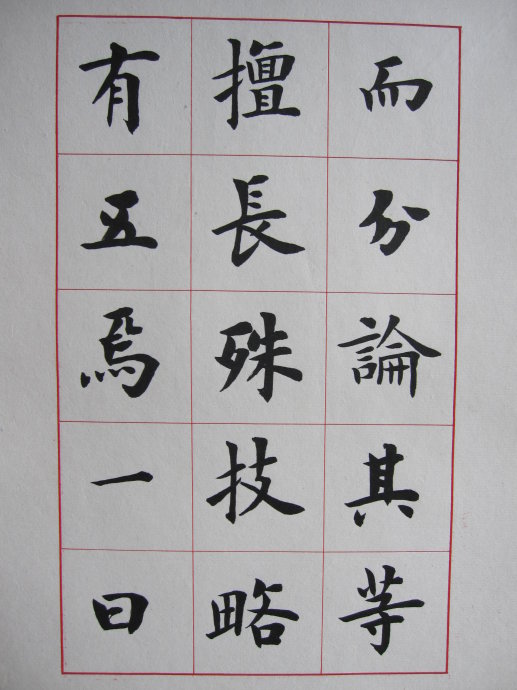 而分論其等
擅長殊技略
有五焉一曰